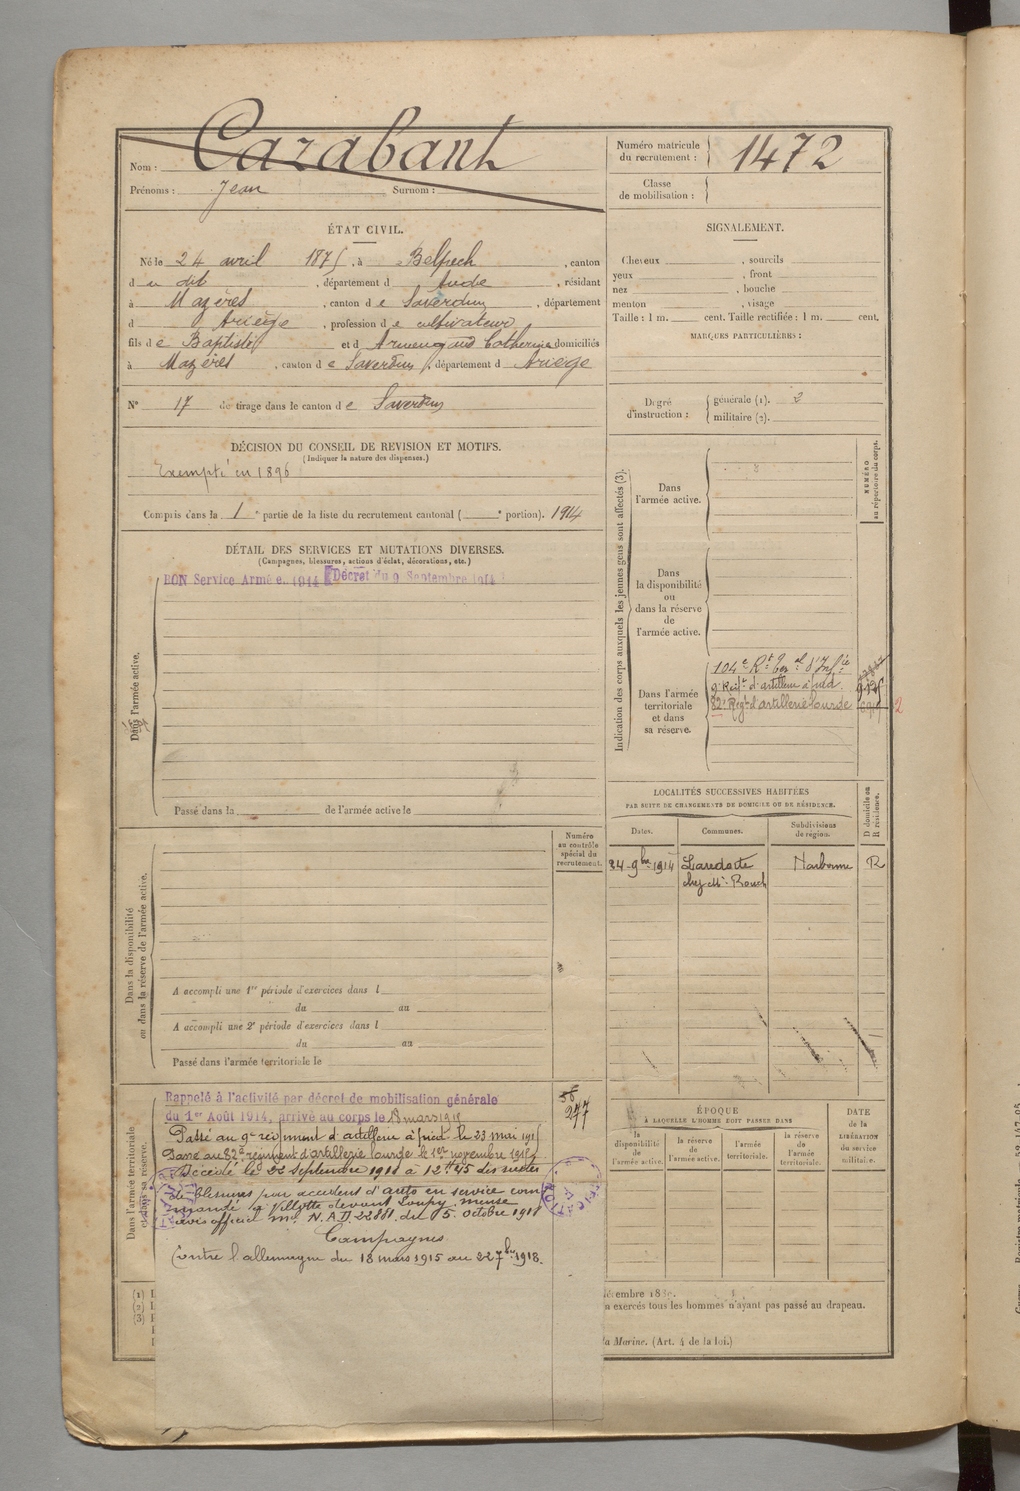 Nom : Cazabant
Prénoms : Jean Surnom :
Numéro matricule du recrutement : 1472
Classe de mobilisation :
ÉTAT CIVIL.
Né le 24 avril 1875, à Belpech, canton
du dit, département d Aude, résidant
à Mazères, canton de Saverdun, département
d Ariège, profession de cultivateur
fils de Baptiste et d Armengaud Catherine domiciliés
à Mazères, canton de Saverdun, département d Ariège
N° 17 de tirage dans le canton de Saverdun
DÉCISION DU CONSEIL DE REVISION ET MOTIFS.
(Indiquer la nature des dispenses.)
Exempté en 1896
Compris dans la 1e partie de la liste du recrutement cantonal ( e portion). 1914
DÉTAIL DES SERVICES ET MUTATIONS DIVERSES.
(Campagnes, blessures, actions d'éclat, décorations, etc.)
BON Service Armé e. 1914 Décret du 9 Septembre 1914
Dans l'armée active.
Passé dans la de l'armée active le
SIGNALEMENT.
Cheveux , sourcils
yeux , front
nez , bouche
menton , visage
Taille : 1 m. cent. Taille rectifiée : 1 m. cent.
MARQUES PARTICULIÈRES :
Degré d'instruction :
générale (1). 2
militaire (2).
Indication des corps auxquels les jeunes gens sont affectés (3).
NUMÉRO au répertoire du corps.
Dans
l'armée active.
Dans
la disponibilité
ou
dans la réserve
de
l'armée active.
Dans l'armée
territoriale
et dans
sa réserve.
104e Rt Ter al d'Inf ie
9e Regt d'artillerie à pied
82e Regt d'artillerie lourde
2
LOCALITÉS SUCCESSIVES HABITÉES
PAR SUITE DE CHANGEMENTS DE DOMICILE OU DE RÉSIDENCE.
Dates. Communes. Subdivisions de région. D domicile ou R résidence.
24 9bre 1914 Laredorte Narbonne R
chez Mr Rouch
Numéro
au contrôle
spécial du
recrutement.
Dans la disponibilité
ou dans la réserve de l'armée active.
A accompli une 1re période d'exercices dans l
du au
A accompli une 2e période d'exercices dans l
du au
Passé dans l'armée territoriale le
Dans l'armée territoriale
et dans sa réserve.
Rappelé à l'activité par décret de mobilisation générale
du 1er Août 1914, arrivé au corps le 18 mars 1915
Passé au 9e régiment d'artillerie à pied le 23 mai 1915
Passé au 82e régiment d'artillerie lourde le 1er novembre 1915
Décédé le 22 septembre 1918 à 12h 45 des suites
de blessures par accident d'auto en service com
mandé à Villotte devant Louppy meuse
avis officiel ml N. A.D. 22881 du 15 octobre 1918
Campagnes
Contre l'allemagne du 18 mars 1915 au 22 7bre 1918.
277
ÉPOQUE
À LAQUELLE L'HOMME DOIT PASSER DANS
la disponibilité de l'armée active.
la réserve de l'armée active.
l'armée territoriale.
la réserve de l'armée territoriale.
DATE de la LIBÉRATION du service militaire.
(1)
(2)
(3)
a exercés tous les hommes n'ayant pas passé au drapeau.
la Marine. (Art. 4 de la loi.)